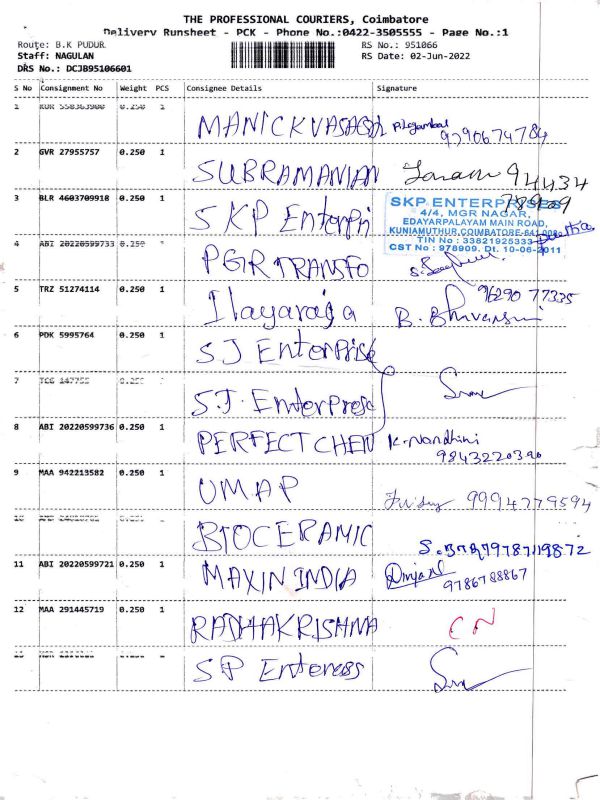 THE PROFESSIONAL COURIERS, Coimbatore
Delivery Runsheet - PCK - Phone No.:0422-3505555 - Page No.:1
Route: B.K PUDUR RS No.: 951066
Staff: NAGULAN RS Date: 02-Jun-2022
DRS No.: DCJB95106601
S No Consignment No Weight PCS Consignee Details Signature
1 0.250 1
MANICKVASAGA 9790674784
2 GVR 27955757 0.250 1
SUBRAMANIAN 94434
3 BLR 4603709918 0.250 1 78909
SKP Enterpri
SKP ENTERPRISES
4/4, MGR NAGAR,
EDAYARPALAYAM MAIN ROAD,
KUNIAMUTHUR,COIMBATORE-641 008
TIN No : 33821925333
CST No : 978909. Dt. 10-06-2011
4 ABI 20220599733 0.250
PGR TRANSFO
5 TRZ 51274114 0.250 1 9629077335
Ilayaraja
6 PDK 5995764 0.250 1
SJ Enterprise
7 0.250 1
S.J. Enterprese
8 ABI 20220599736 0.250 1
PERFECT CHEM K. Nandhini
9843220390
9 MAA 942213582 0.250 1
UMAP 9994779594
BIOCERAMIC
11 ABI 20220599721 0.250 1
MAXIN INDIA 9786788867
12 MAA 291445719 0.250 1
RADHAKRISHNA CN
SP Enteress